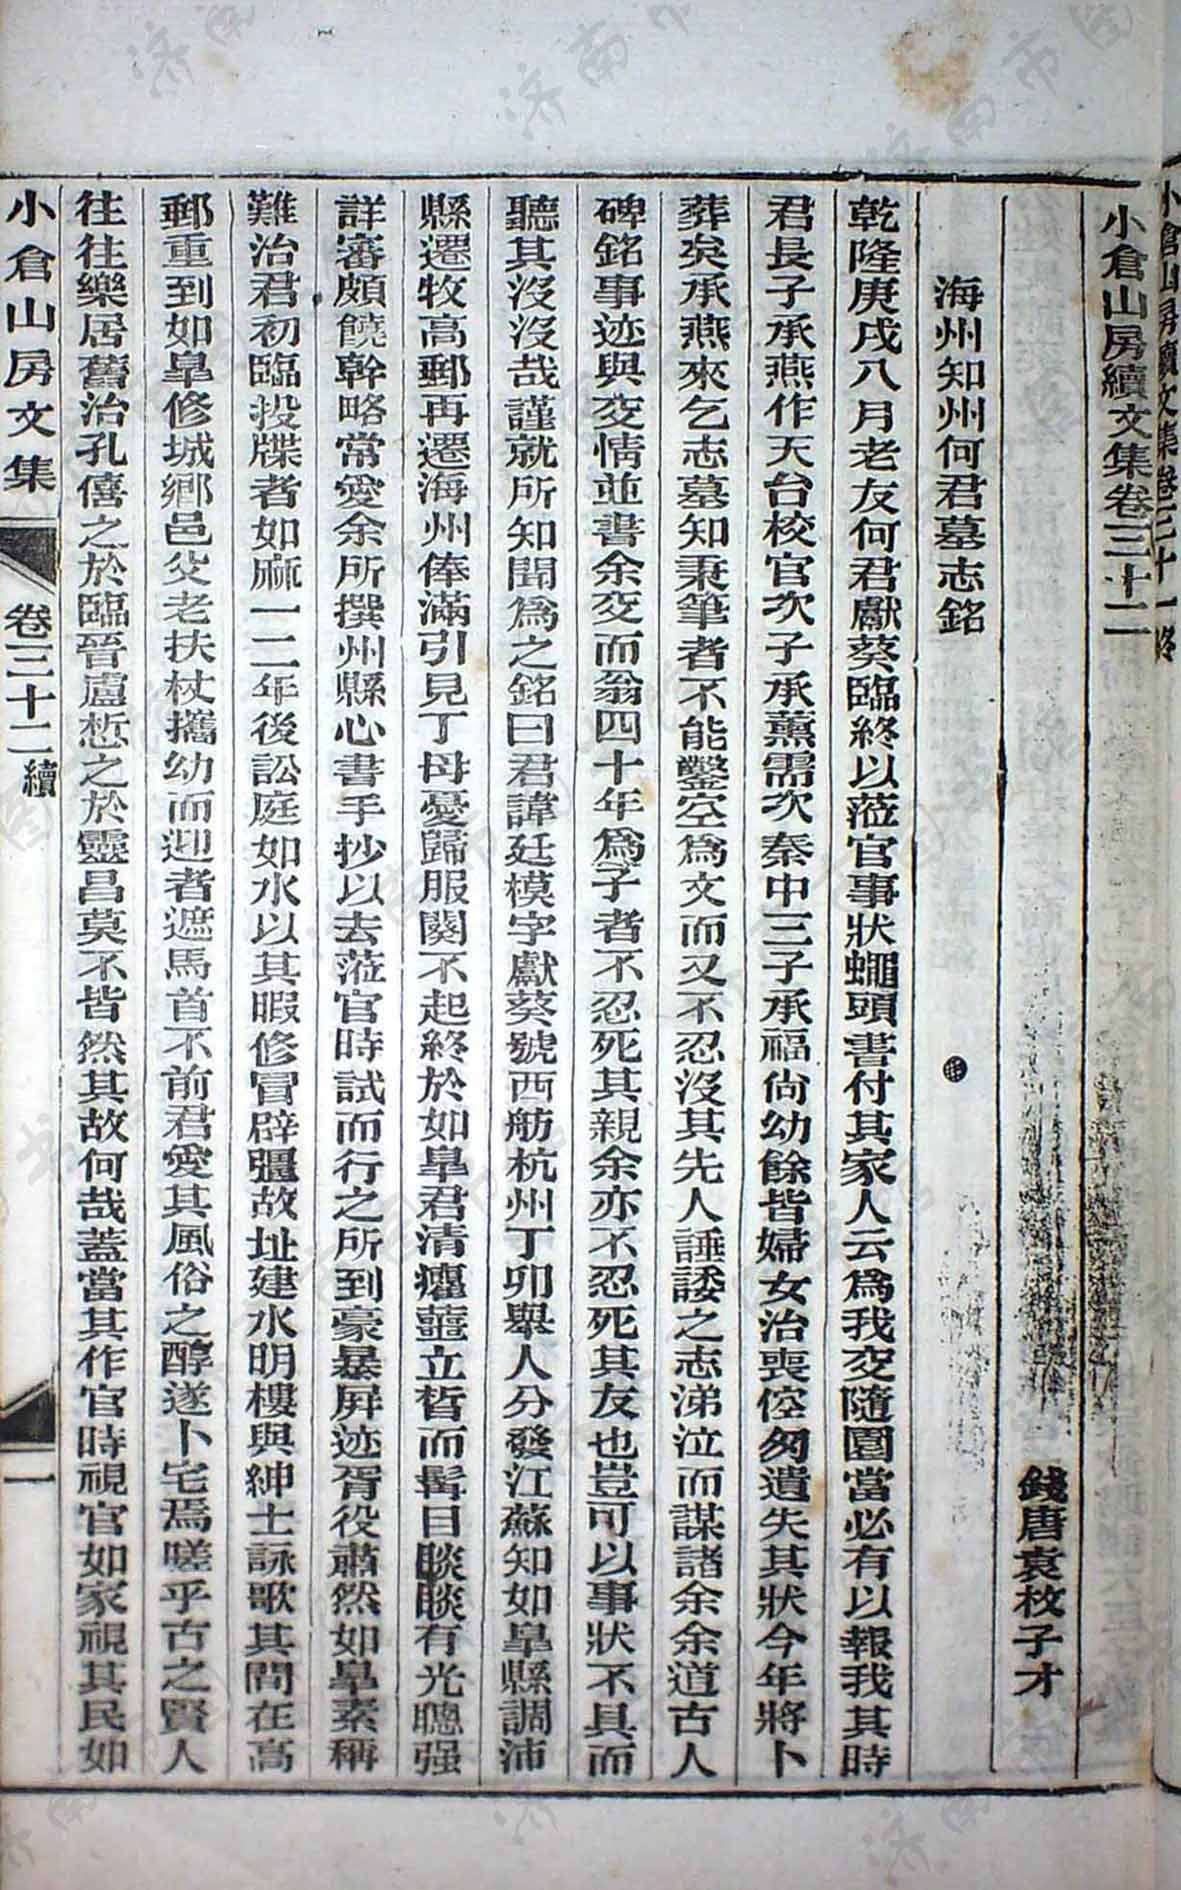 小倉山房續文集卷三十一終
小倉山房續文集卷三十二
錢唐袁枚子才
海州知州何君墓志銘
乾隆庚戌八月老友何君獻葵臨終以蒞官事狀蠅頭書付其家人云爲我交隨園當必有以報我其時
君長子承燕作天台校官次子承薰需次秦中三子承福尙幼餘皆婦女治喪倥匆遺失其狀今年將卜
葬矣承燕來乞志墓知秉筆者不能鑿空爲文而又不忍沒其先人諈諉之志涕泣而謀諸余余道古人
碑銘事迹與交情並書余交而翁四十年爲子者不忍死其親余亦不忍死其友也豈可以事狀不具而
聽其沒沒哉謹就所知聞爲之銘曰君諱廷模字獻葵號西舫杭州丁卯舉人分發江蘇知如皐縣調沛
縣遷牧高郵再遷海州俸滿引見丁母憂歸服闋不起終於如皐君清癯虀立晳而髯目睒睒有光聰强
詳審頗饒幹略常愛余所撰州縣心書手抄以去蒞官時試而行之所到豪暴屛迹胥役肅然如皐素稱
難治君初臨投牒者如麻一二年後訟庭如水以其暇修冒辟疆故址建水明樓與紳士詠歌其間在高
郵重到如皐修城鄉邑父老扶杖攜幼而迎者遮馬首不前君愛其風俗之醇遂卜宅焉嗟乎古之賢人
往往樂居舊治孔僖之於臨晉盧悊之於靈昌莫不皆然其故何哉蓋當其作官時視官如家視其民如
小倉山房文集
卷三十二續
一